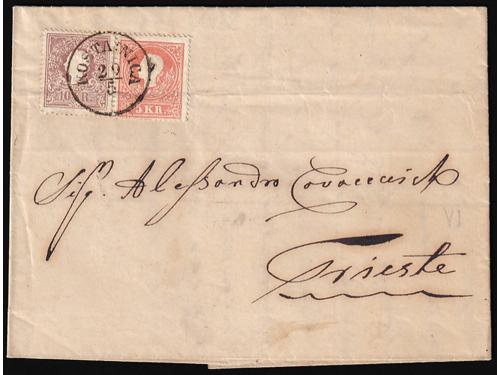 KOSTAJNICA
22
5
10 KR.
5 KR.
Sig. Alessandro Covaceusich
Trieste
VI